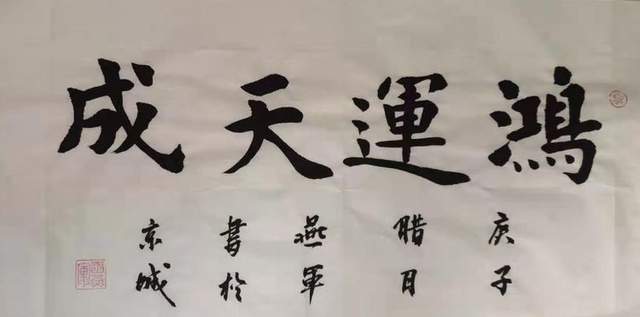 鴻運天成
庚子
腊月
燕軍
書於
京城